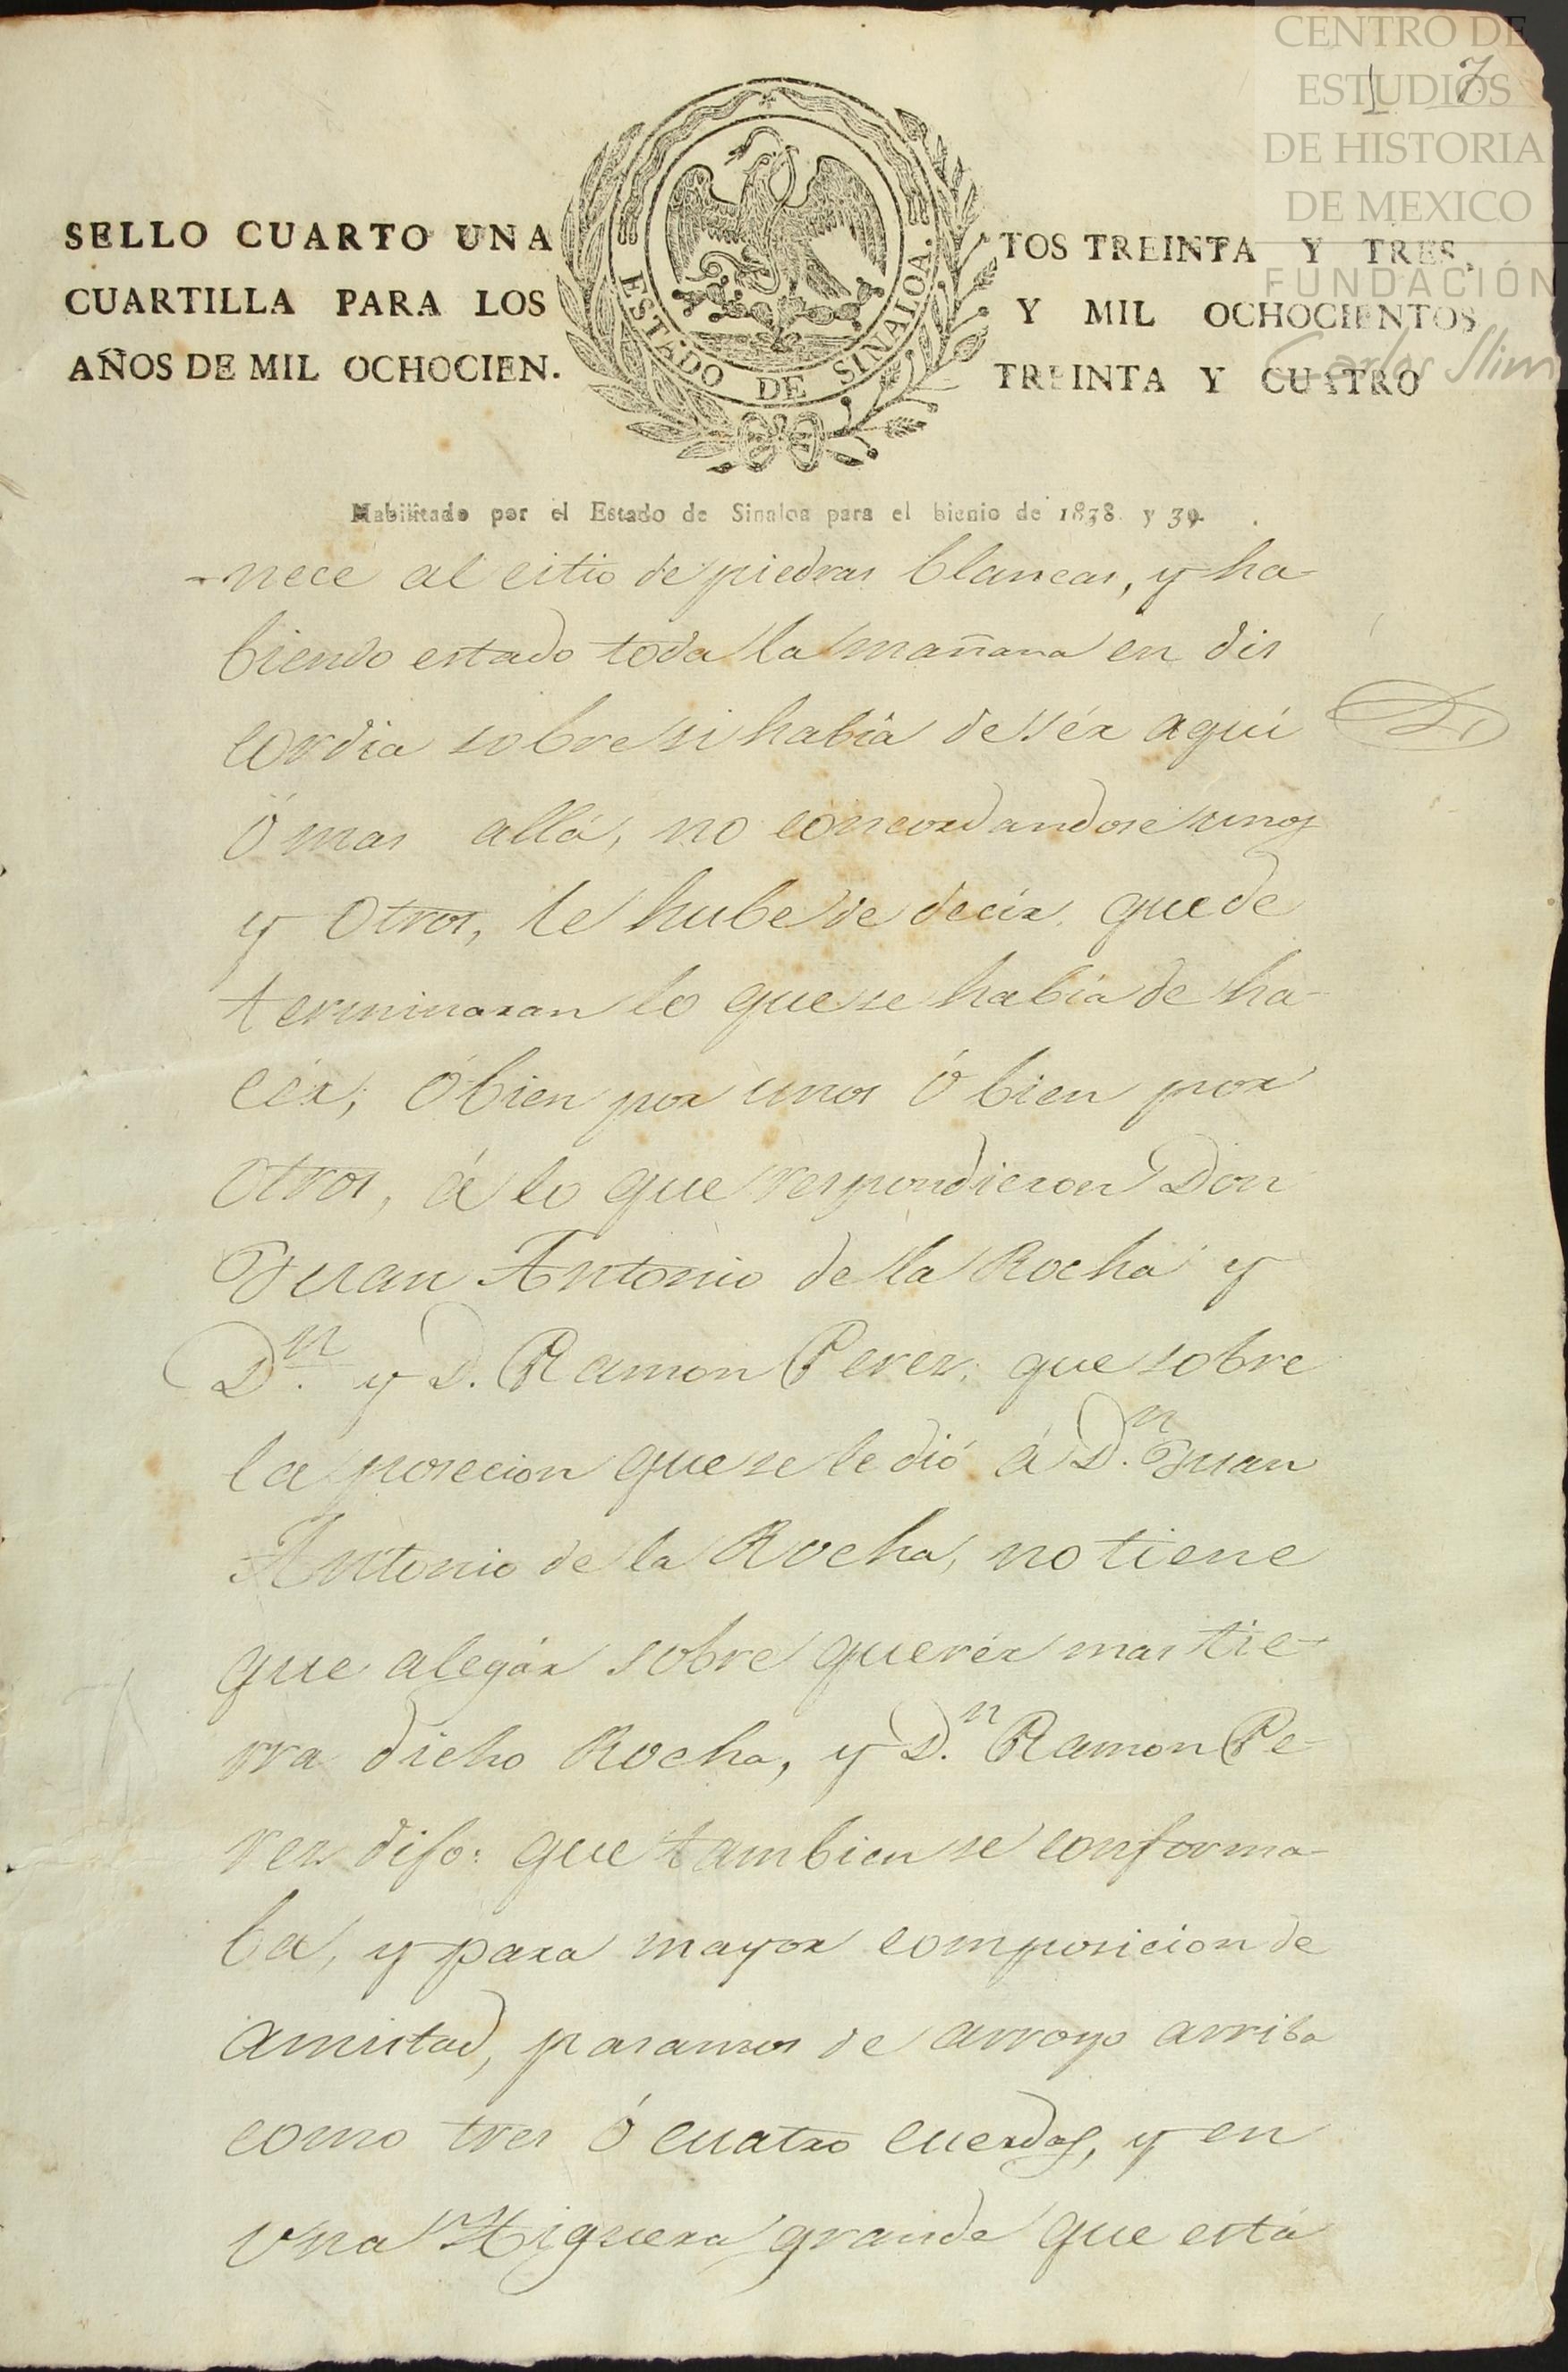 CENTRO DE
ESTUDIOS
DE HISTORIA
DE MEXICO
FUNDACIÓN
Carlos Slim
1 7
SELLO CUARTO UNA
CUARTILLA PARA LOS
AÑOS DE MIL OCHOCIEN.
ESTADO DE SINALOA.
TOS TREINTA Y TRES,
Y MIL OCHOCIENTOS
TREINTA Y CUATRO
Habilitado por el Estado de Sinaloa para el bienio de 1838. y 39.
-nece al citio de piedras blancas, y ha-
biendo estado toda la mañana en dis
cordia sobre si habia de sér aqui
ó mas allá, no concordandose unos
y otros, le hube de decir, que de
terminaran lo que se habia de ha-
cér, ó bien por unos ó bien por
otros, á lo que respondieron Don
Juan Antonio de la Rocha y
Dn. y D. Ramon Perez, que sobre
la posecion que se le dió á Dn. Juan
Antonio de la Rocha, no tiene
que alegár sobre querér mas tie-
rra dicho Rocha, y Dn. Ramon Pe-
rez dijo: que tambien se conforma-
ba, y para mayor composicion de
amistad, pasamos de arroyo arriba
como tres ó cuatro cuerdas, y en
una Higuera grande que está